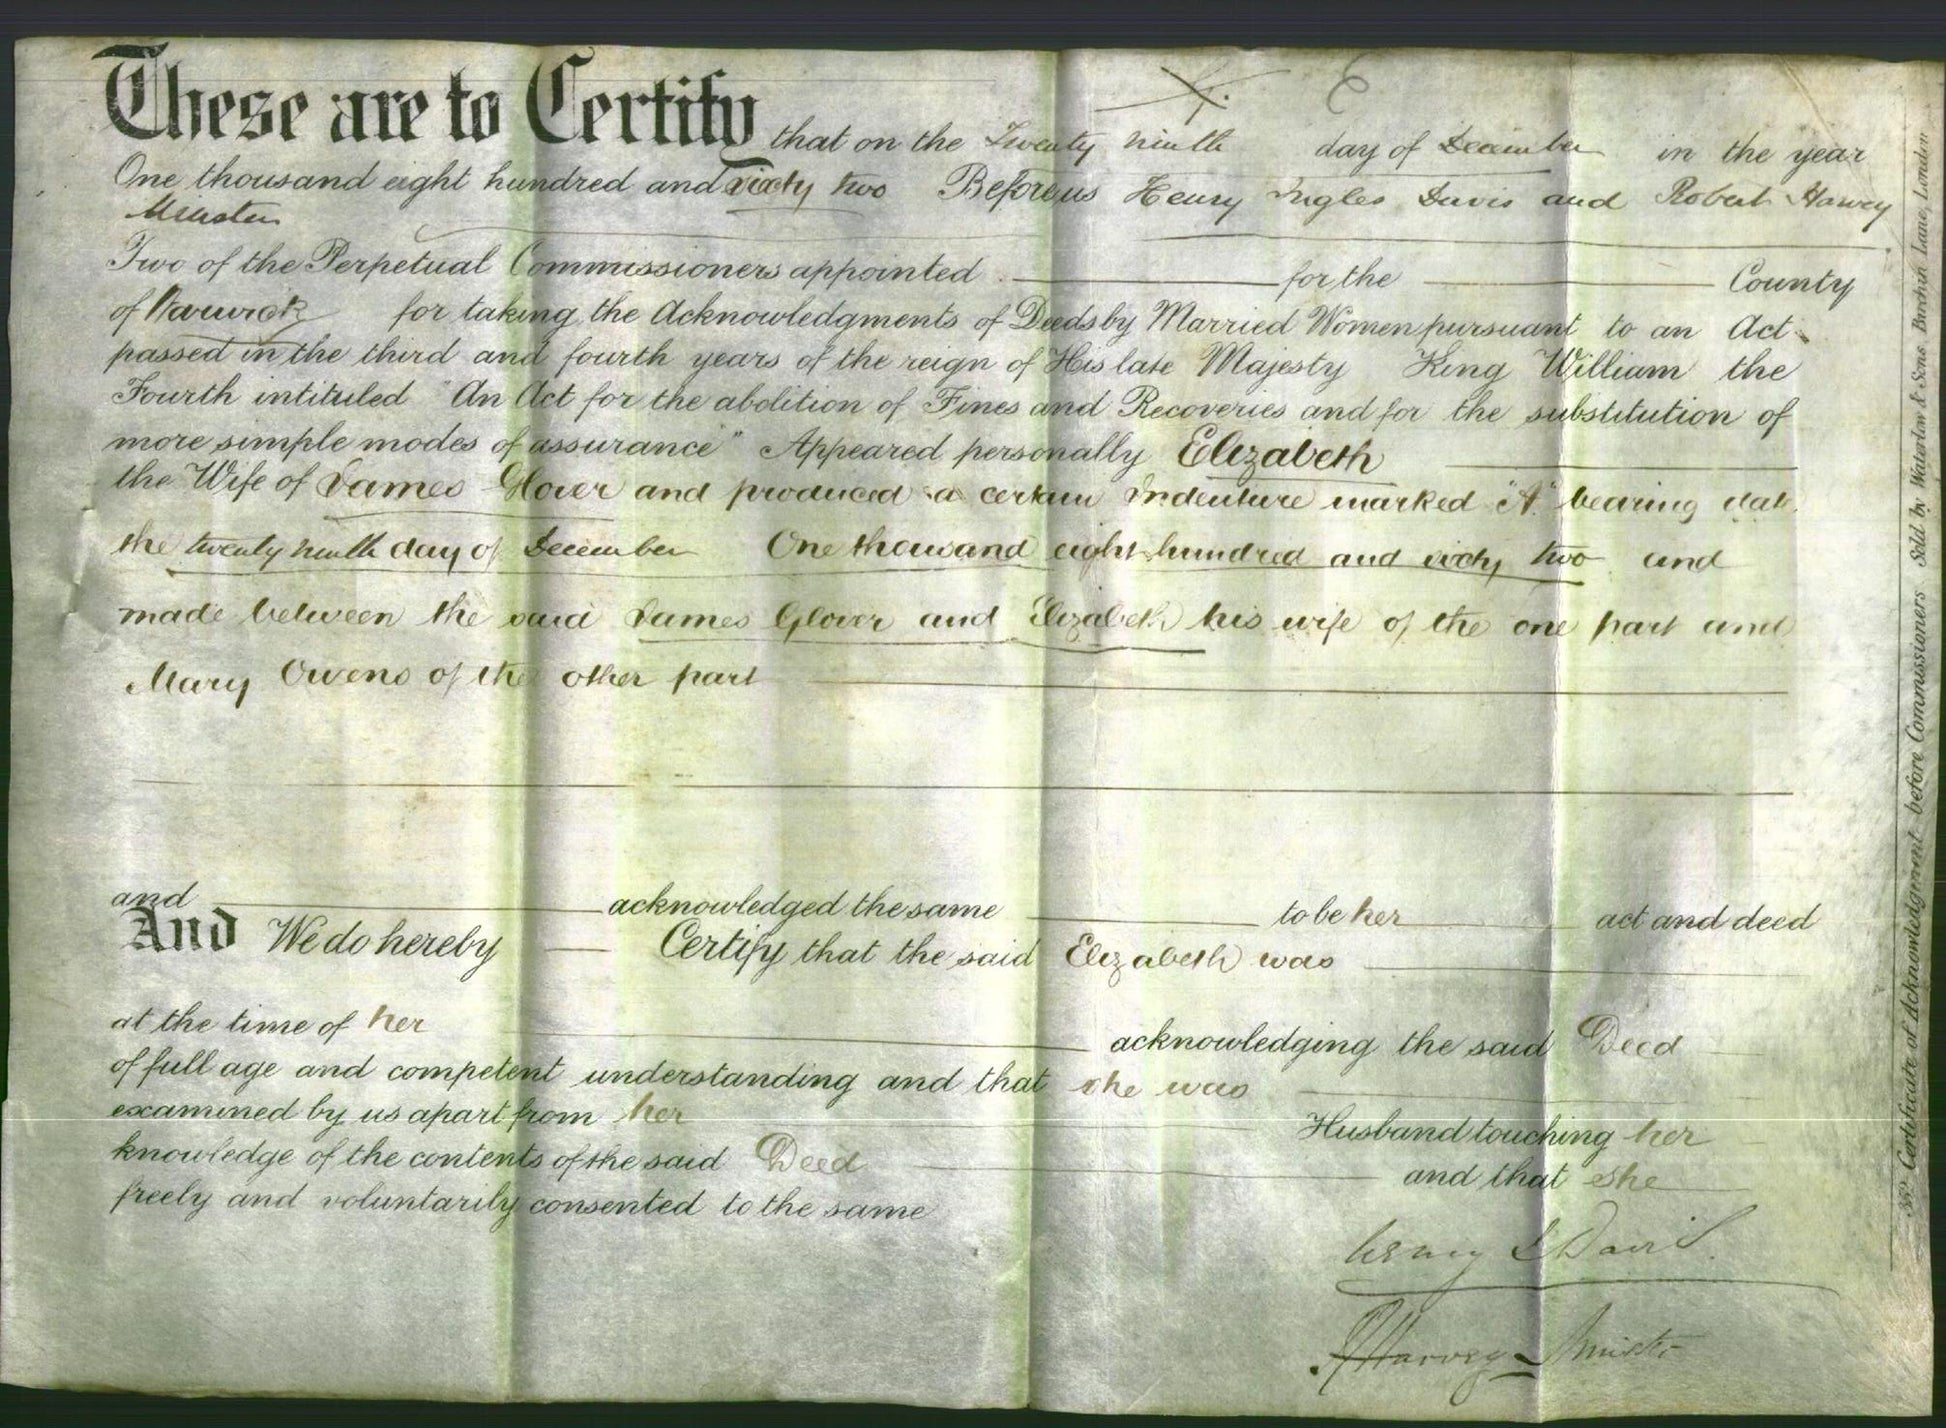 These are to Certify that on the Twenty ninth day of December in the year
One thousand eight hundred and sixty two Before us Henry Ingles Davis and Robert Harvey
Minster
Two of the Perpetual Commissioners appointed for the County
of Warwick for taking the Acknowledgments of Deeds by Married Women pursuant to an Act
passed in the third and fourth years of the reign of His late Majesty King William the
Fourth intituled "An Act for the abolition of Fines and Recoveries and for the substitution of
more simple modes of assurance" Appeared personally Elizabeth
the Wife of James Glover and produced a certain Indenture marked "A" bearing date
the twenty ninth day of December One thousand eight hundred and sixty two and
made between the said James Glover and Elizabeth his wife of the one part and
Mary Owens of the other part
and acknowledged the same to be her act and deed
And We do hereby Certify that the said Elizabeth was
at the time of her acknowledging the said Deed
of full age and competent understanding and that she was
examined by us apart from her Husband touching her
knowledge of the contents of the said Deed and that she
freely and voluntarily consented to the same
Henry I Davis.
R Harvey Minster
Certificate of Acknowledgment before Commissioners Sold by Waterlow & Sons Birchin Lane, London